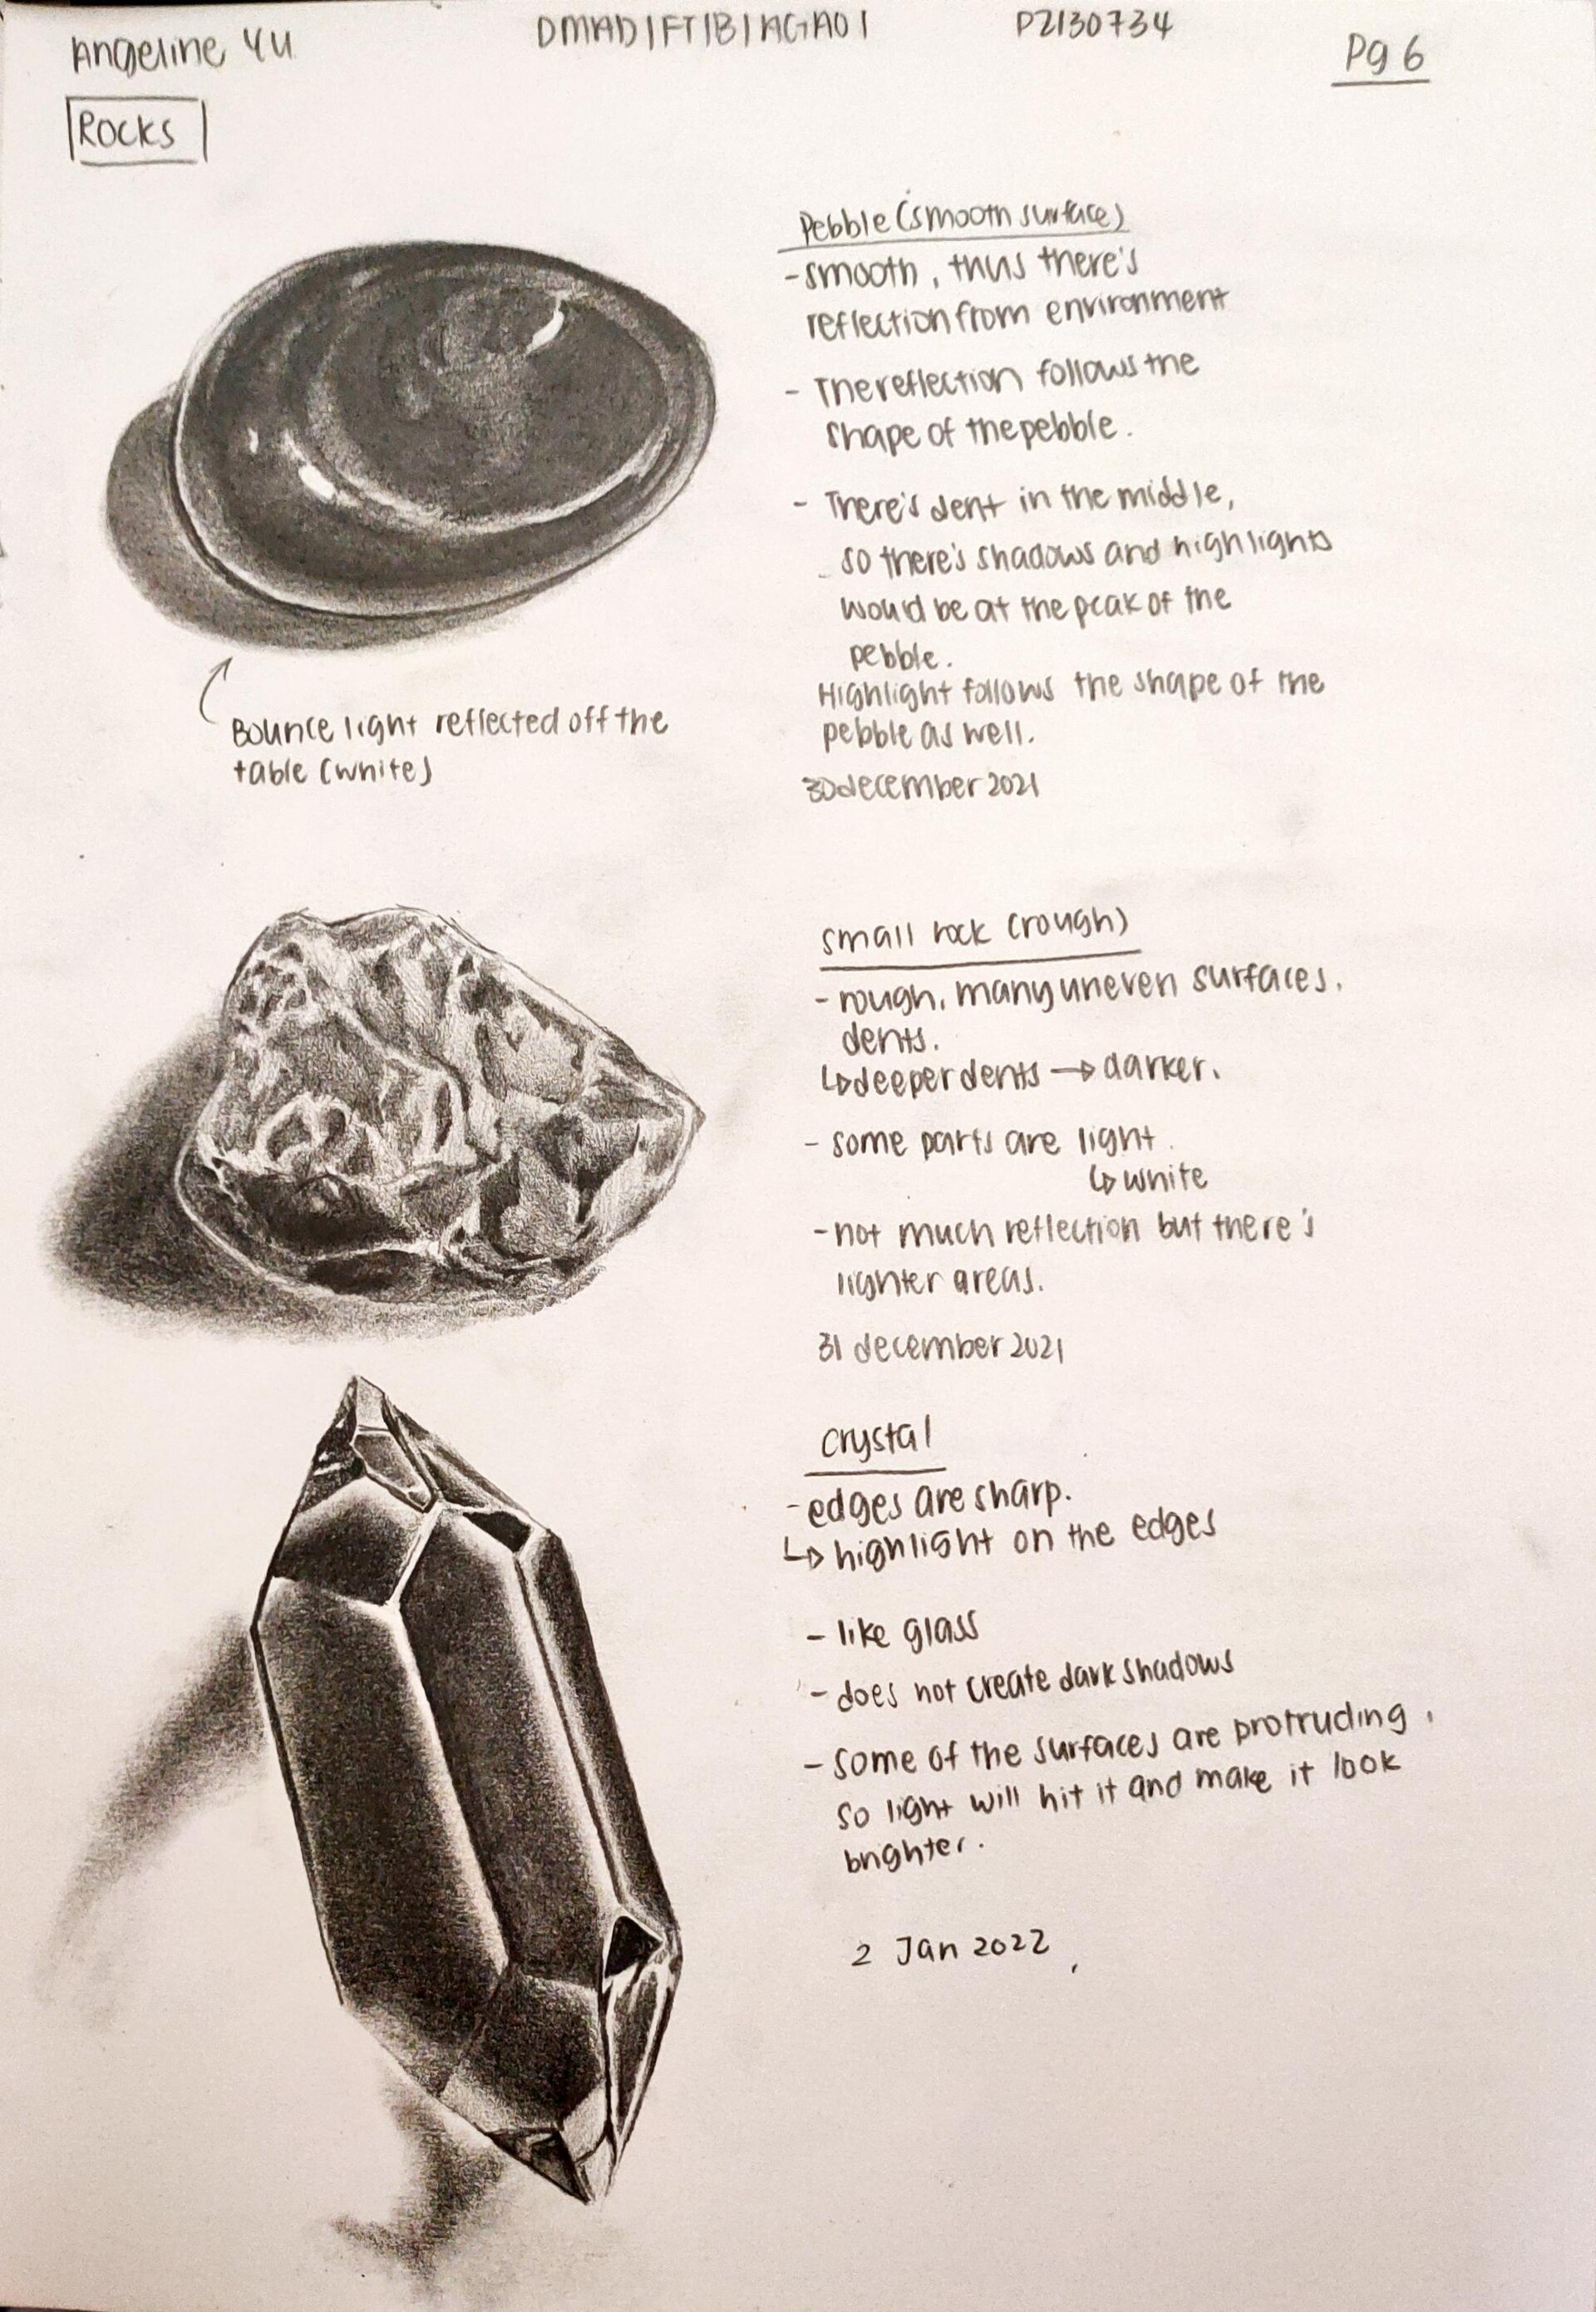 Angeline Yu
DMAD/FT/1B/AGA01
P2130734
Pg 6
Rocks
Pebble (smooth surface)
- smooth, thus there's
reflection from environment
- The reflection follows the
shape of the pebble.
- There's dent in the middle,
so there's shadows and highlights
would be at the peak of the
pebble.
Highlight follows the shape of the
pebble as well.
30 december 2021
Bounce light reflected off the
table (white)
small rock (rough)
- rough, many uneven surfaces.
dents.
↳ deeper dents → darker.
- some parts are light.
↳ white
- not much reflection but there's
lighter areas.
31 december 2021
crystal
- edges are sharp.
↳ highlight on the edges
- like glass
- does not create dark shadows
- some of the surfaces are protruding,
so light will hit it and make it look
brighter.
2 Jan 2022